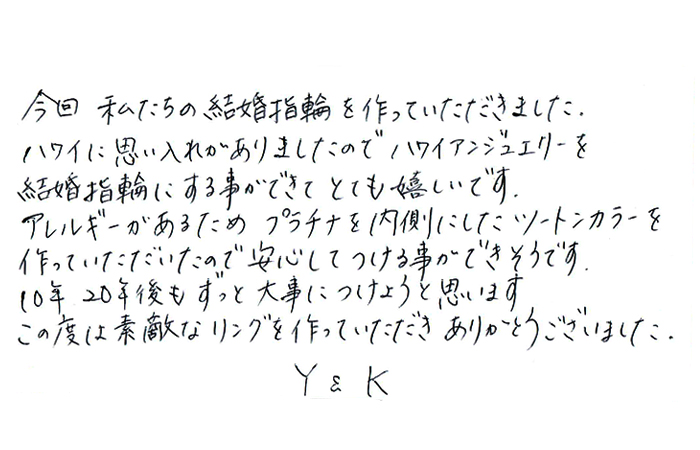 今回 私たちの結婚指輪を作っていただきました.
ハワイに思い入れがありましたのでハワイアンジュエリーを
結婚指輪にする事ができてとても嬉しいです.
アレルギーがあるため プラチナを内側にしたツートンカラーを
作っていただいたので安心してつける事ができそうです.
10年 20年後もずっと大事につけようと思います
この度は素敵なリングを作っていただきありがとうございました.
Y & K